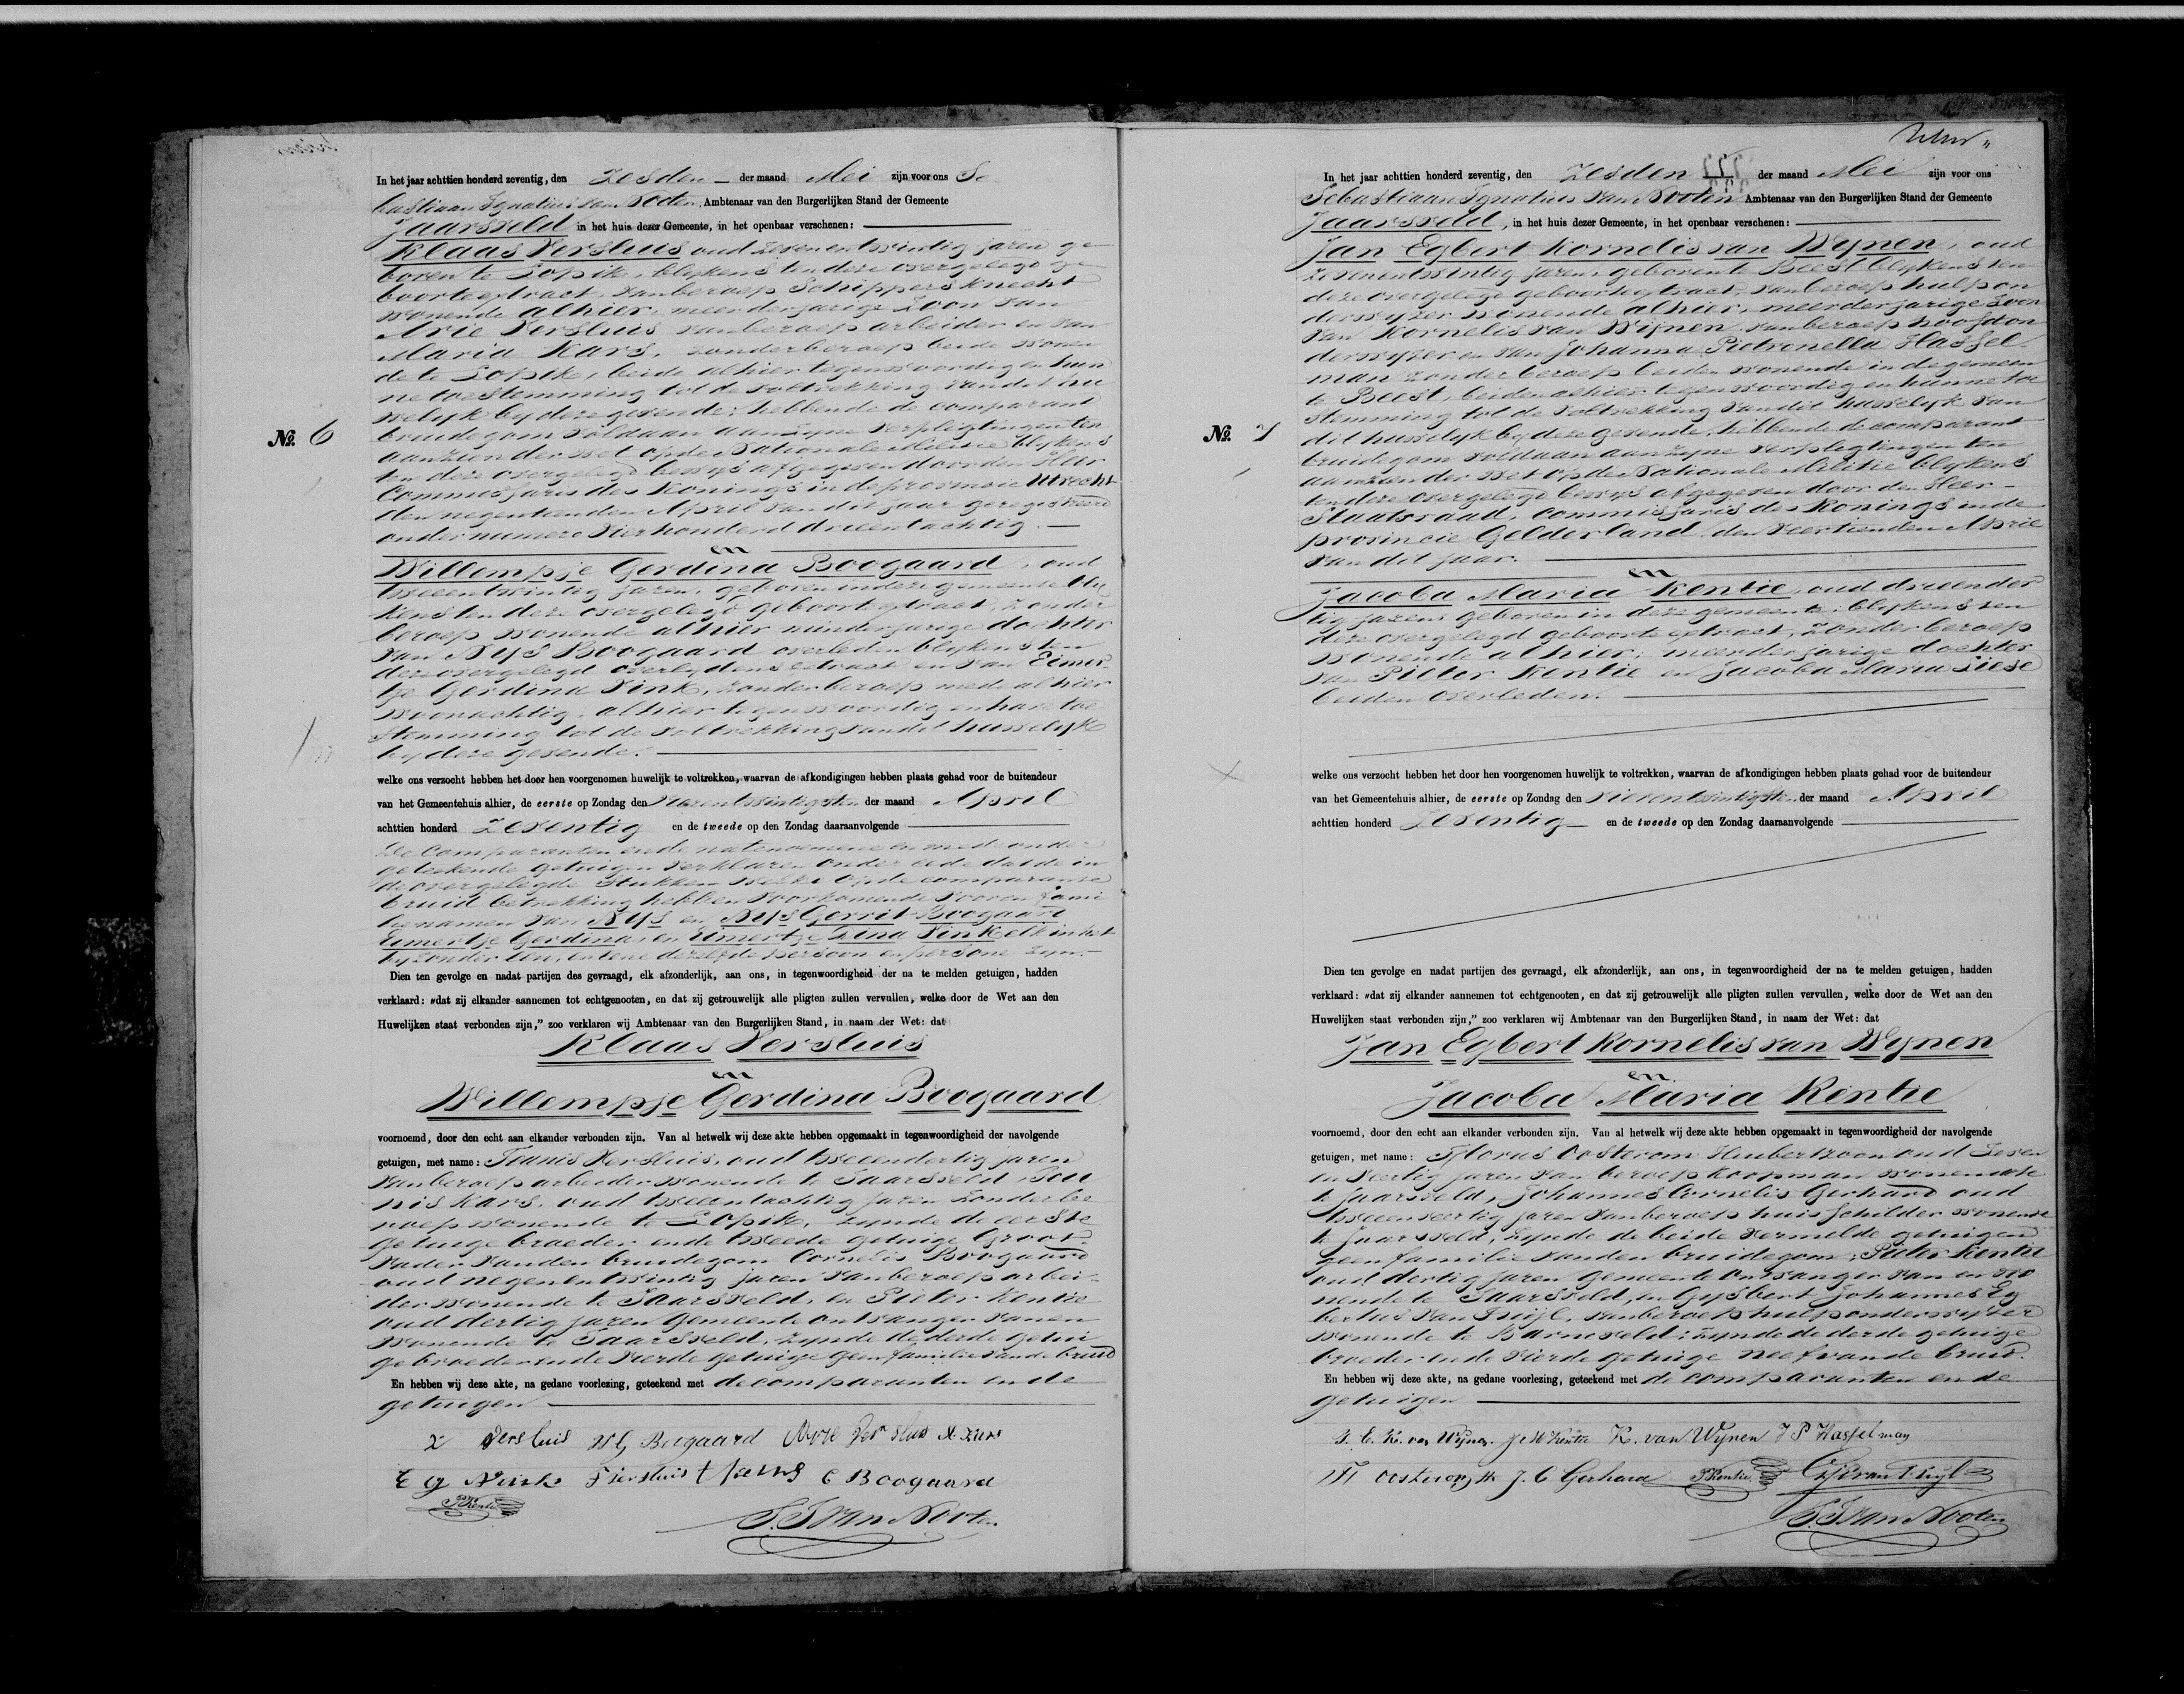 In het jaar achttien honderd zeventig, den Zesden der maand Mei zijn voor ons Se
bastiaan Ignatius van Nooten, Ambtenaar van den Burgerlijken Stand der Gemeente
Jaarsveld in het huis dezer Gemeente, in het openbaar verschenen:
Klaas Versluis oud zevenentwintig jaren ge
boren te Lopik, blykens ten deze overgelegd ge
boorteextract, van beroep Schippersknecht
wonende alhier, meerderjarige Zoon van
Arie Versluis van beroep arbeider en van
Maria Kars, zonder beroep beide wonen
de te Lopik, beide alhier tegenwoordig en hun
ne toestemming tot de voltrekking van dit hu
welyk by deze gevende; hebbende de comparant
bruidegom voldaan aan zyne verpligtingen ten
aanzien der wet op de Nationale Militie blykens
ten deze overgelegd bewys afgegeven door den Heer
Commissaris des Konings in de provincie Utrecht
den negentienden April van dit jaar geregistreerd
onder numero Vierhonderd drieentachtig.
en
Willempje Gerdina Boogaard, oud
tweeentwintig jaren, geboren in deze gemeente bly
kens ten deze overgelegd geboorteextract, zonder
beroep wonende alhier minderjarige dochter
van Nys Boogaard overleden blykens ten
deze overgelegd overlydensextract en van Eimer
tje Gerdina Vink, zonder beroep mede alhier
woonachtig, alhier tegenwoordig en hare toe
stemming tot de voltrekking van dit huwelyk
by deze gevende.
No. 6
welke ons verzocht hebben het door hen voorgenomen huwelijk te voltrekken, waarvan de afkondigingen hebben plaats gehad voor de buitendeur
van het Gemeentehuis alhier, de eerste op Zondag den Vierentwintigsten der maand April
achttien honderd Zeventig en de tweede op den Zondag daaraanvolgende
De comparanten en de natenoemene en mede onder
geteekende getuigen verklaren onder eede dat de in
de overgelegde stukken welke op de comparante
bruid betrekking hebben voorkomende voor en fami
lienamen van Nys en Nys Gerrit Boogaard
Eimertje Gerdina, en Eimertje Dina Vink elk in het
byzonder een, en eene dezelfde persoon en persone zyn.
Dien ten gevolge en nadat partijen des gevraagd, elk afzonderlijk, aan ons, in tegenwoordigheid der na te melden getuigen, hadden
verklaard: „dat zij elkander aannemen tot echtgenooten, en dat zij getrouwelijk alle pligten zullen vervullen, welke door de Wet aan den
Huwelijken staat verbonden zijn," zoo verklaren wij Ambtenaar van den Burgerlijken Stand, in naam der Wet: dat
Klaas Versluis
en
Willempje Gerdina Boogaard
voornoemd, door den echt aan elkander verbonden zijn. Van al hetwelk wij deze akte hebben opgemaakt in tegenwoordigheid der navolgende
getuigen, met name: Teunis Versluis, oud tweeendertig jaren
van beroep arbeider wonende te Jaarsveld, Teu
nis Kars, oud tweeentachtig jaren zonder be
roep wonende te Lopik, zynde de eerste
getuige broeder en de tweede getuige Groot
vader van den bruidegom Cornelis Boogaard
oud negenentwintig jaren van beroep arbei
der wonende te Jaarsveld, en Pieter Kentie
oud dertig jaren Gemeente ontvanger van en
wonende te Jaarsveld, zynde de derde getui
ge broeder en de vierde getuige geen familie van de bruid
En hebben wij deze akte, na gedane voorlezing, geteekend met de comparanten en de
getuigen
Versluis W G Boogaard
E G Vink C Boogaard
PKentie
S.I van Nooten
In het jaar achttien honderd zeventig, den Zesden der maand Mei zijn voor ons
Sebastiaan Ignatius van Nooten Ambtenaar van den Burgerlijken Stand der Gemeente
Jaarsveld, in het huis dezer Gemeente, in het openbaar verschenen:
Jan Egbert Kornelis van Wynen, oud
zevenentwintig jaren, geboren te Beest blykens ten
deze overgelegd geboorteextract, van beroep hulpon
derwyzer wonende alhier, meerderjarige Zoon
van Kornelis van Wynen, van beroep hoofdon
derwyzer en van Johanna Pietronella Hassel
man zonder beroep beiden wonende in de gemeen
te Beest, beiden alhier tegenwoordig en hunne toe
stemming tot de voltrekking van dit huwelyk van
dit huwelyk by deze gevende, hebbende de comparant
bruidegom voldaan aan zyne verpligtingen ten
aanzien der wet op de Nationale Militie blykens
ten deze overgelegd bewys afgegeven door den Heer
Staatsraad, Commissaris des Konings in de
provincie Gelderland, den Veertienden April
van dit jaar.
en
Jacoba Maria Kentie, oud drieender
tig jaren geboren in deze gemeente, blykens ten
deze overgelegd geboorteextract, zonder beroep
wonende alhier; meerderjarige dochter
van Pieter Kentie en Jacoba Maria
beiden overleden.
No. 7
welke ons verzocht hebben het door hen voorgenomen huwelijk te voltrekken, waarvan de afkondigingen hebben plaats gehad voor de buitendeur
van het Gemeentehuis alhier, de eerste op Zondag den Vierentwintigsten der maand April
achttien honderd Zeventig en de tweede op den Zondag daaraanvolgende
Dien ten gevolge en nadat partijen des gevraagd, elk afzonderlijk, aan ons, in tegenwoordigheid der na te melden getuigen, hadden
verklaard: „dat zij elkander aannemen tot echtgenooten, en dat zij getrouwelijk alle pligten zullen vervullen, welke door de Wet aan den
Huwelijken staat verbonden zijn," zoo verklaren wij Ambtenaar van den Burgerlijken Stand, in naam der Wet: dat
Jan Egbert Kornelis van Wynen
en
Jacoba Maria Kentie
voornoemd, door den echt aan elkander verbonden zijn. Van al hetwelk wij deze akte hebben opgemaakt in tegenwoordigheid der navolgende
getuigen, met name: Florus Oosterom Huibertzoon oud Zeven
en Veertig jaren van beroep Koopman wonende
te Jaarsveld, Johannes Cornelis Gerhard oud
tweeenveertig jaren van beroep huisschilder wonende
te Jaarsveld, zynde de beide vermelde getuigen
geen familie van den bruidegom; Pieter Kentie
oud dertig jaren Gemeente Ontvanger van en wo
nende te Jaarsveld, en Gysbert Johannes Eg
bertus van Truyl, van beroep hulponderwyzer
wonende te Barneveld; zynde de derde getuige
broeder en de vierde getuige neef van de bruid.
En hebben wij deze akte, na gedane voorlezing, geteekend met de comparanten en de
getuigen
J. E. K. van Wijnen. J M Kentie K. van Wynen J P Hasselman
Fl Oosterom J. C Gerhard PKentie
S.I van Nooten